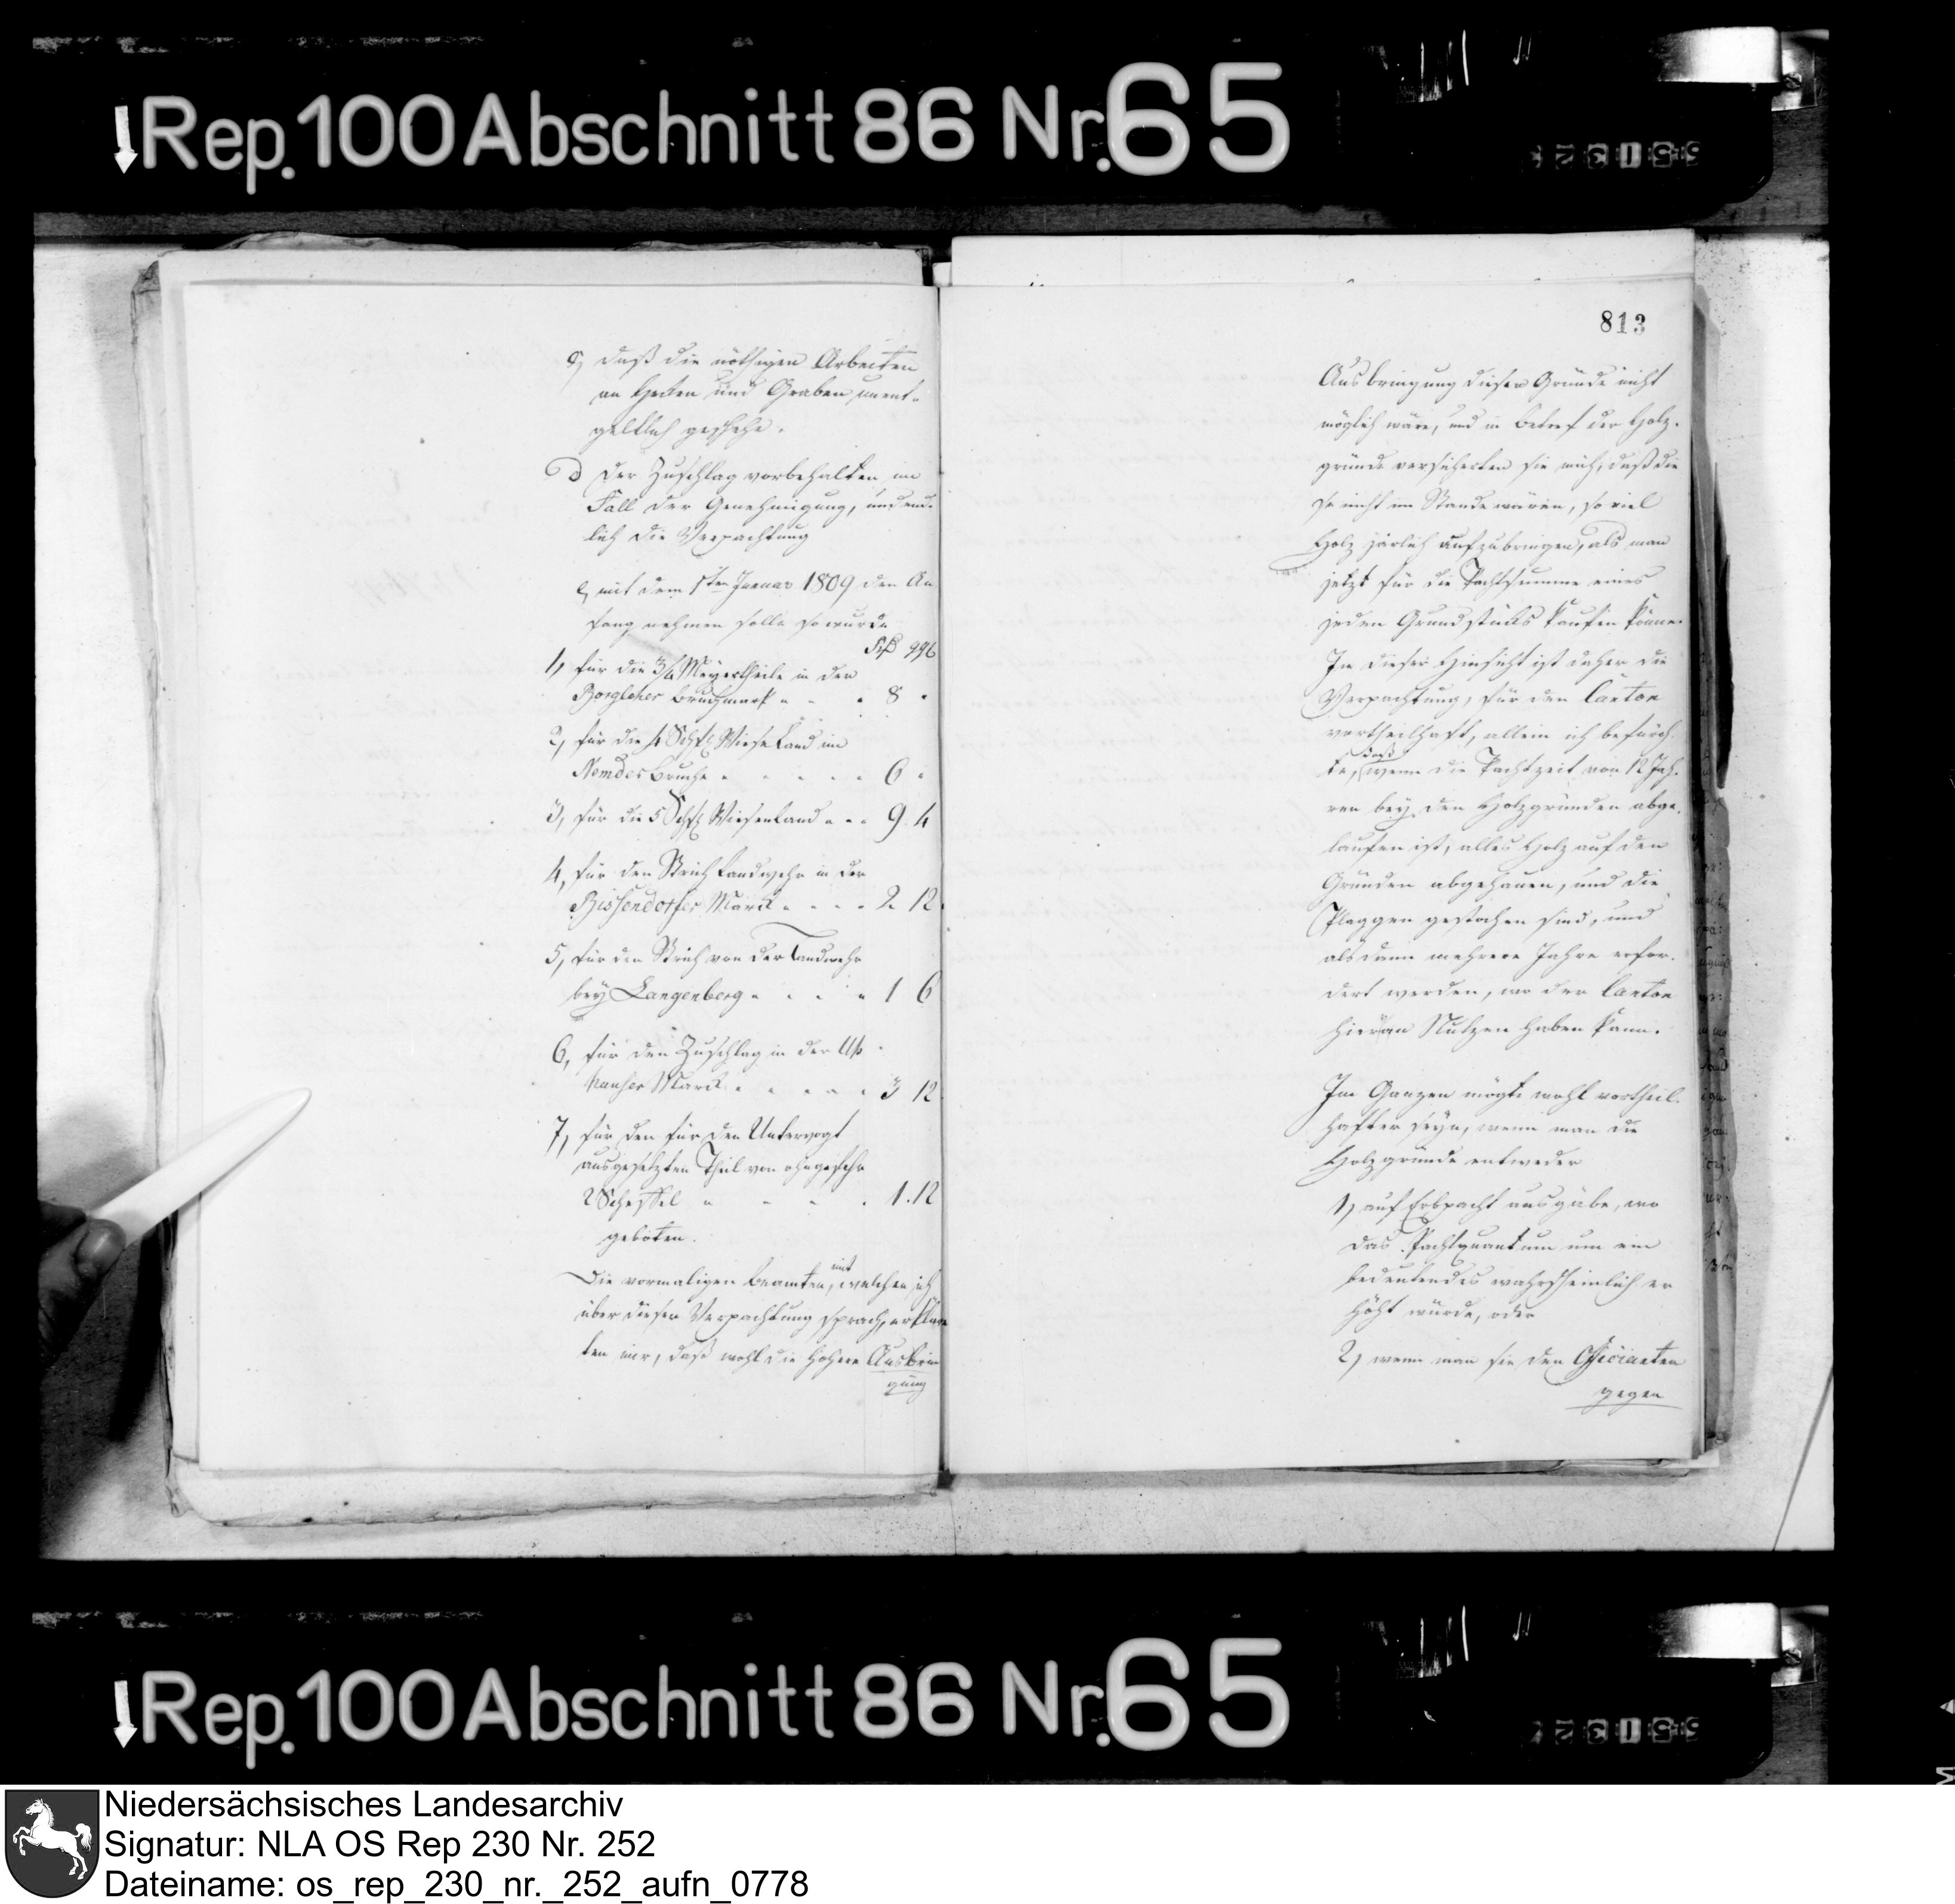 Rep. 100 Abschnitt 86 Nr. 65
c, daß die nöthigen Arbeiten
an Hecken und Graben unent-
geltlich geschehe.
d der Zuschlag vorbehalten im
Fall der Genehmigung, und end-
lich die Verpachtung
e, mit dem 1ten Januar 1809 den An
fang nehmen solle so wurde
1, für die 3/4 Meyertheile in der
Borgloher Bruchmark - - - 8 -
2, für die 4 Schfl Wieseland im
Bruche - - - - - 6 -
3, für die 5 Schfl Wiesenland - - - 9. 4
4, für den Strich Landwehr in der
Bissendorfer Marck - - - - 2 12
5, für den Strich von der Landwehr
bey Langenberg - - - - 1 6
6, für den Zuschlag in der
Marck - - - - - 3 12
7, für den für den Untervogt
ausgesetzten Theil von ohngefehr
2 Scheffel - - - - 1. 12
geboten.
Die vormaligen Beamten, mit welchen ich
über diesen Verpachtung sprach, erklär
ten mir, daß wohl die höhere Ausbrin
gung
813
Ausbringung dieser Gründe nicht
möglich wäre, und in Betref der Holz-
gründe versicherten sie mich, daß die
se nicht im Stande wären, so viel
Holz järlich aufzubringen, als man
jetzt für die Pachtsumme eines
jeden Grundstücks kaufen könne.
In dieser Hinsicht ist daher die
Verpachtung, für den Canton
vortheilhaft, allein ich befürch-
te, daß wenn die Pachtzeit von 12 Jah-
ren bey den Holzgründen abge-
laufen ist, alles Holz auf den
Gründen abgehauen, und die
Plaggen gestochen sind, und
alsdann mehrere Jahre erfor-
dert werden, wo der Canton
hieran Nutzen haben kann.
Im Ganzen mögte wohl vortheil-
hafter seyn, wenn man die
Holzgründe entweder
1, auf Erbpacht ausgäbe, wo
das Pachtquantum um ein
bedeutendes wahrscheinlich er
höht würde, oder
2, wenn man sie den Officianten
gegen
Rep. 100 Abschnitt 86 Nr. 65
Niedersächsisches Landesarchiv
Signatur: NLA OS Rep 230 Nr. 252
Dateiname: os_rep_230_nr._252_aufn_0778